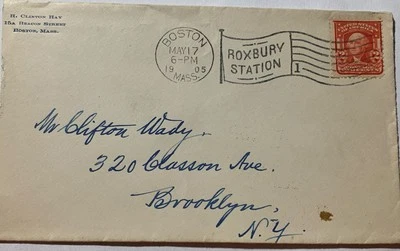 H. Clinton Hay
15a Beacon Street
Boston, Mass.
BOSTON
MAY 17
6-PM
1905
MASS.
ROXBURY
STATION
1
Mr Clifton Wady,
320 Classon Ave.
Brooklyn,
N.Y.